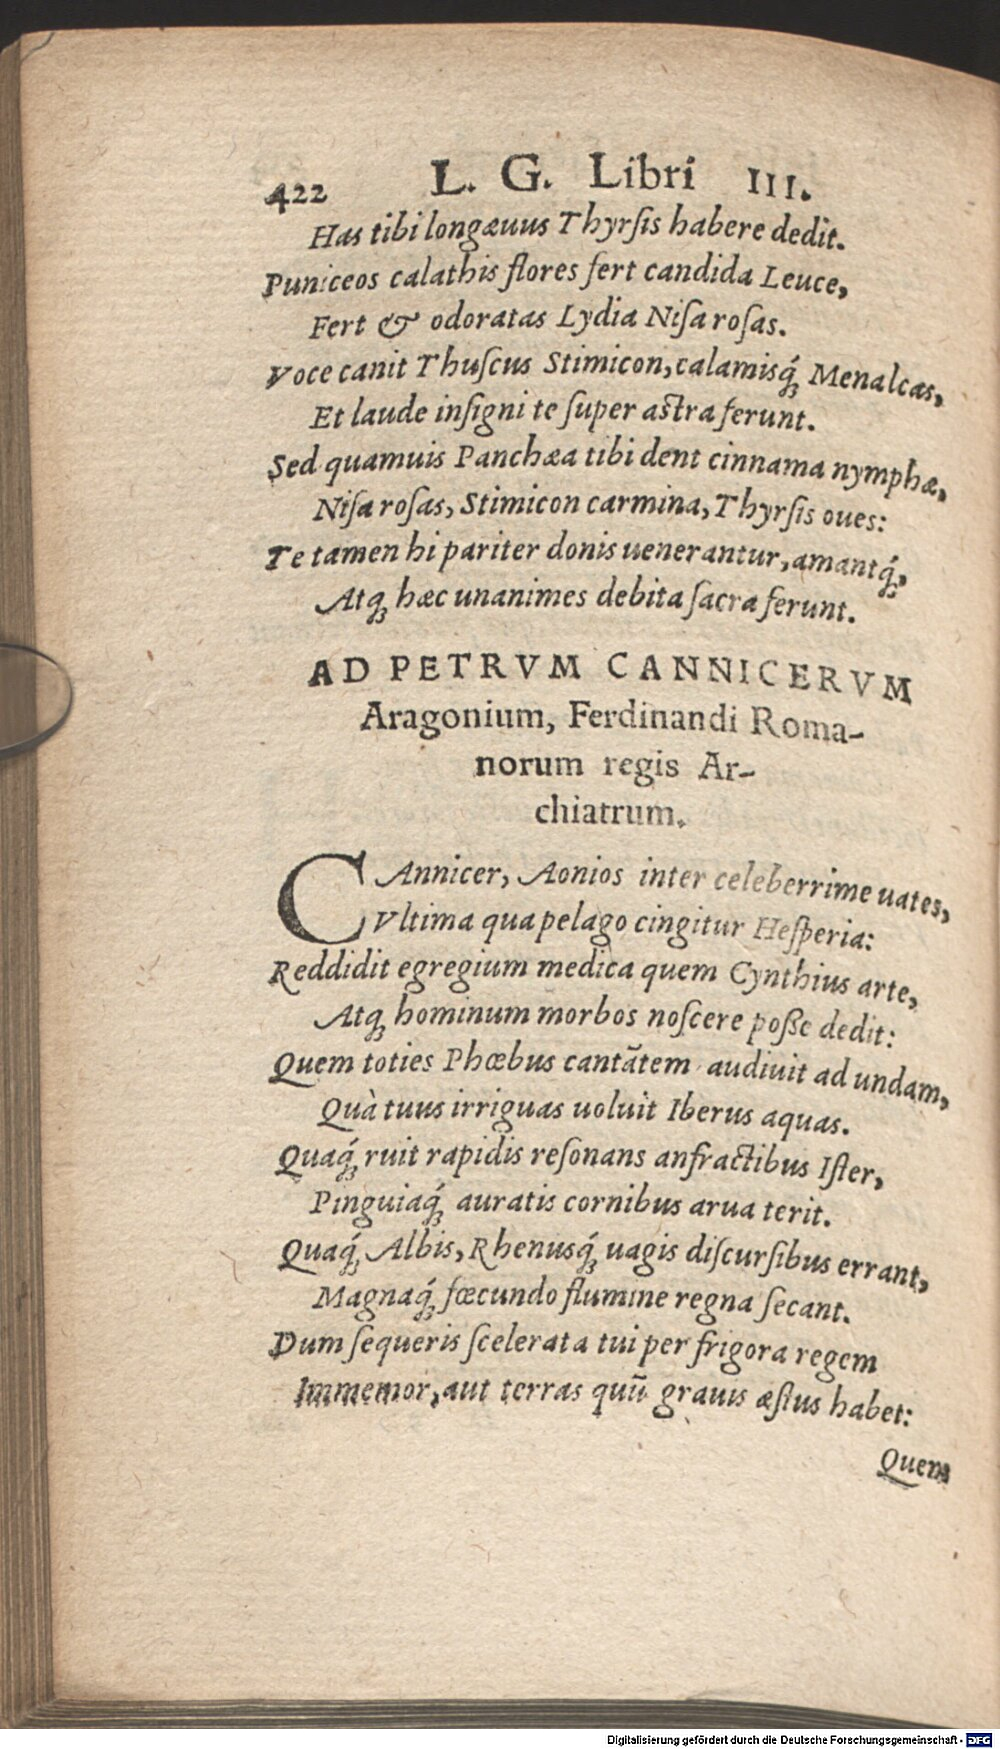 422 L. G. Libri III.
Has tibi longæuus Thyrſis habere dedit.
Puniceos calathis flores fert candida Leuce,
Fert & odoratas Lydia Niſa roſas.
Voce canit Thuſcus Stimicon, calamisq́ꝫ Menalcas,
Et laude inſigni te ſuper astra ferunt.
Sed quamuis Panchæa tibi dent cinnama nymphæ,
Niſa roſas, Stimicon carmina, Thyrſis oues:
Te tamen hi pariter donis uenerantur, amantq́ꝫ,
Atqꝫ hæc unanimes debita ſacra ferunt.
AD PETRVM CANNICERVM
Aragonium, Ferdinandi Roma-
norum regis Ar-
chiatrum.
CAnnicer, Aonios inter celeberrime uates,
Vltima qua pelago cingitur Heſperia:
Reddidit egregium medica quem Cynthius arte,
Atqꝫ hominum morbos noſcere poße dedit:
Quem toties Phœbus cantātem audiuit ad undam,
Quà tuus irriguas uoluit Iberus aquas.
Quaq́ꝫ ruit rapidis reſonans anfractibus Iſter,
Pinguiaq́ꝫ auratis cornibus arua terit.
Quaq́ꝫ Albis, Rhenusq́ꝫ uagis diſcurſibus errant,
Magnaq́ꝫ fœcundo flumine regna ſecant.
Dum ſequeris ſcelerata tui per frigora regem
Immemor, aut terras quū grauis æſtus habet:
Quem
Digitalisierung gefördert durch die Deutsche Forschungsgemeinschaft - DFG